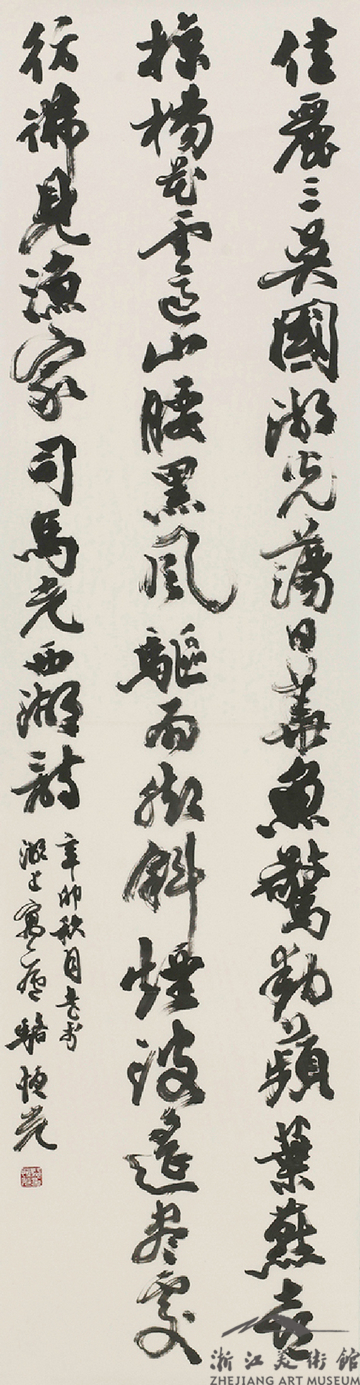 佳麗三吳國湖光蕩日華魚驚動蘋葉燕喜
掠楊花雲過山腰黑風驅雨腳斜煙波遙盡處
彷彿見漁家司馬光西湖詩
辛卯秋月書於
湖上寓廬駱恒光
浙江美術館
ZHEJIANG ART MUSEUM